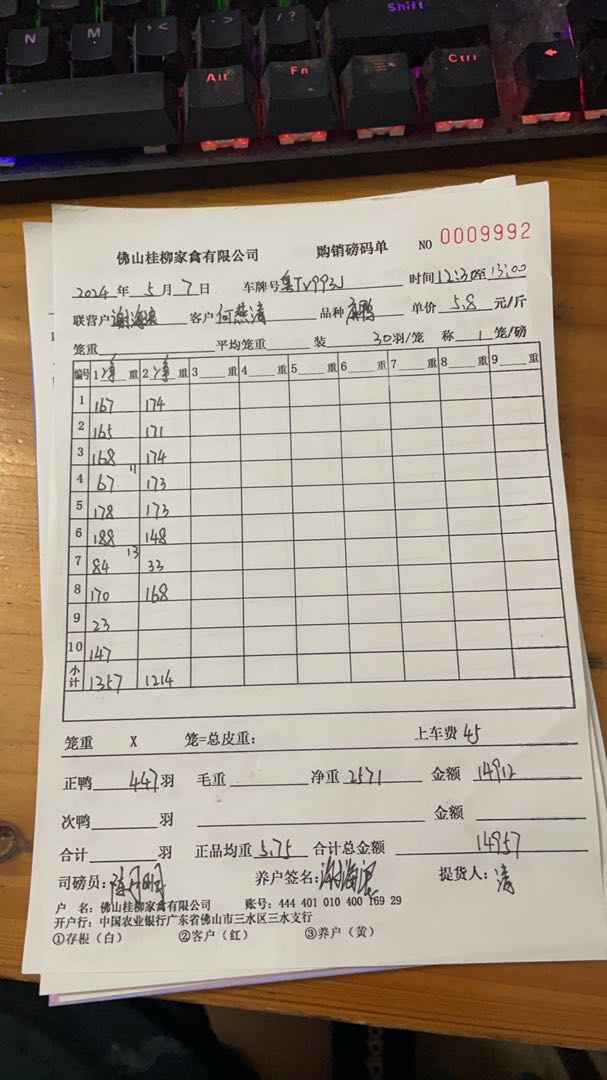 N M < > /? Shift
Alt Fn Ctrl
佛山桂柳家禽有限公司 购销磅码单 NO 0009992
2024 年 5 月 7 日 车牌号 粤TV993J 时间 12:30至13:00
联营户 谢海浪 客户 何燕清 品种 麻鸭 单价 5.8 元/斤
笼重 平均笼重 装 30羽/笼 称 1 笼/磅
编号 1 净 重 2 净 重 3 重 4 重 5 重 6 重 7 重 8 重 9 重
1 167 174
2 165 171
3 168 174
4 67 11 173
5 178 173
6 188 148
7 84 13 33
8 170 168
9 23
10 147
小计 1357 1214
笼重 X 笼=总皮重: 上车费 45
正鸭 447 羽 毛重 净重 2571 金额 14912
次鸭 羽 金额
合计 羽 正品均重 5.75 合计总金额 14957
司磅员: 养户签名: 谢海浪 提货人: 清
户 名: 佛山桂柳家禽有限公司 账号: 444 401 010 400 169 29
开户行: 中国农业银行广东省佛山市三水区三水支行
①存根(白) ②客户(红) ③养户(黄)